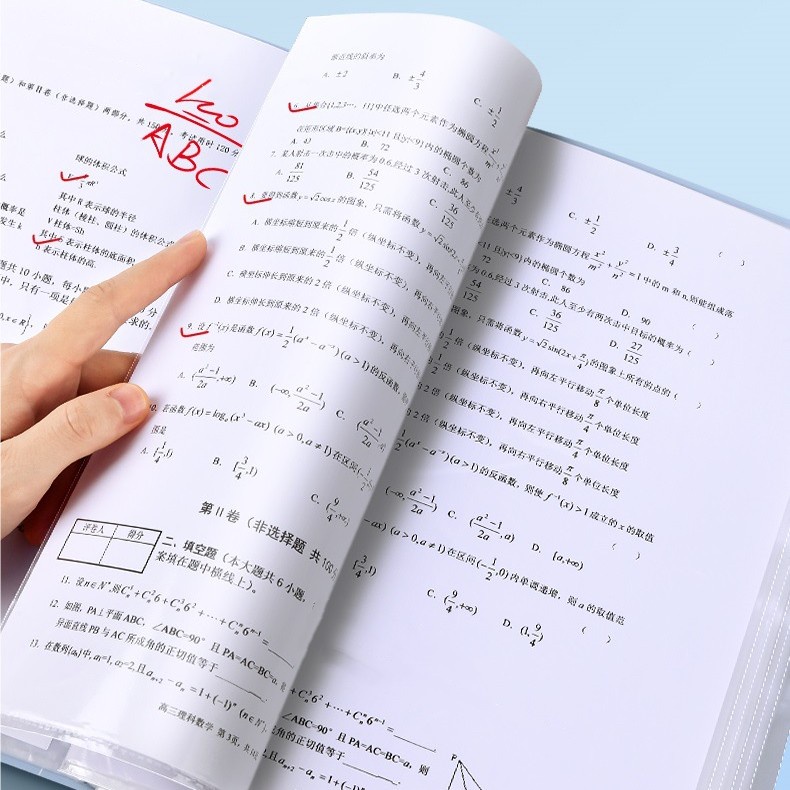 题）和第Ⅱ卷（非选择题）两部分，共150
考试用时120分
120
ABC
球的体积公式
其中R表示球的半径
柱体（棱柱、圆柱）的体积公式
V柱体=Sh
表示柱体的底面积
h表示柱体的高.
概率是
发生k
题共10小题，每小
中，只有一项是
A. ±2
B. ±4/3
C. ±1/2
中任选两个元素作为椭圆方程
内的椭圆个数为
A. 43
B. 72
C. 86
7. 某人射击一次击中的概率为0.6,经过3次射击,此人至少
A. 81/125
B. 54/125
C. 36/125
8. 要得到函数y=√2cosx的图象，只需将函数y=√2sin(2x
A. 横坐标缩短到原来的1/2倍（纵坐标不变），再向左
B. 横坐标缩短到原来的1/2倍（纵坐标不变），再向右
C. 横坐标伸长到原来的2倍（纵坐标不变），再向左
D. 横坐标伸长到原来的2倍（纵坐标不变），再向右
9. 设f⁻¹(x)是函数f(x)=1/2(aˣ-a⁻ˣ)(a>1)的反函数，
范围为
A. (a²-1/2a,+∞)
B. (-∞,a²-1/2a)
C. (a²-1/2a,
10. 若函数f(x)=logₐ(x³-ax) (a>0,a≠1)在区间(-1/2
围是
A. [1/4,1)
B. [3/4,1)
C. (9/4,+∞)
第Ⅱ卷（非选择题 共100
评卷人 得分
二、填空题（本大题共6小题，
案填在题中横线上）。
11. 设n∈N*,则Cₙ¹+Cₙ²6+Cₙ³6²+…+Cₙⁿ6ⁿ⁻¹=
12. 如图, PA⊥平面ABC, ∠ABC=90° 且PA=AC=BC=a,
异面直线PB与AC所成角的正切值等于
13. 在数列{aₙ}中, a₁=1, a₂=2,且aₙ₊₂-aₙ=1+(-1)ⁿ (n∈N*)
高三理科数学 第3页，共
±4/3
C. ±1/2
D. ±3/4
（ ）
选两个元素作为椭圆方程x²/m²+y²/n²=1中的m和n,则能组成落
<11且|y|<9}内的椭圆个数为
72
C. 86
D. 90
（ ）
为0.6,经过3次射击,此人至少有两次击中目标的概率为（ ）
54/125
C. 36/125
D. 27/125
图象，只需将函数y=√2sin(2x+π/4)的图象上所有的点的（ ）
倍（纵坐标不变），再向左平行移动π/8个单位长度
倍（纵坐标不变），再向右平行移动π/4个单位长度
2倍（纵坐标不变），再向左平行移动π/4个单位长度
2倍（纵坐标不变），再向右平行移动π/8个单位长度
1/2(aˣ-a⁻ˣ)(a>1)的反函数，则使f⁻¹(x)>1成立的x的取值
（ ）
(-∞,a²-1/2a)
C. (a²-1/2a,a)
D. [a,+∞)
-ax) (a>0,a≠1)在区间(-1/2,0)内单调递增，则a的取值范
（ ）
[3/4,1)
C. (9/4,+∞)
D. (1,9/4)
+Cₙ³6²+…+Cₙⁿ6ⁿ⁻¹=
∠ABC=90° 且PA=AC=BC=a，则
角的正切值等于
aₙ₊₂-aₙ=1+(-1)ⁿ
P